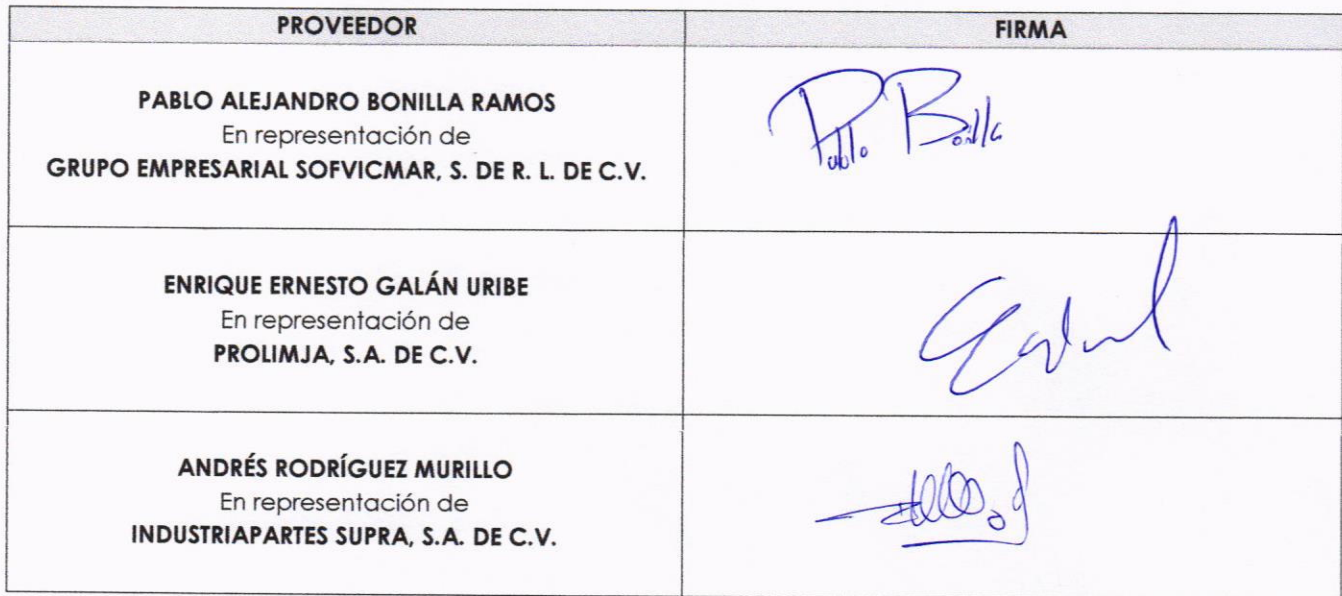 PROVEEDOR
FIRMA
PABLO ALEJANDRO BONILLA RAMOS
En representación de
GRUPO EMPRESARIAL SOFVICMAR, S. DE R. L. DE C.V.
Pablo Bonilla
ENRIQUE ERNESTO GALÁN URIBE
En representación de
PROLIMJA, S.A. DE C.V.
ANDRÉS RODRÍGUEZ MURILLO
En representación de
INDUSTRIAPARTES SUPRA, S.A. DE C.V.